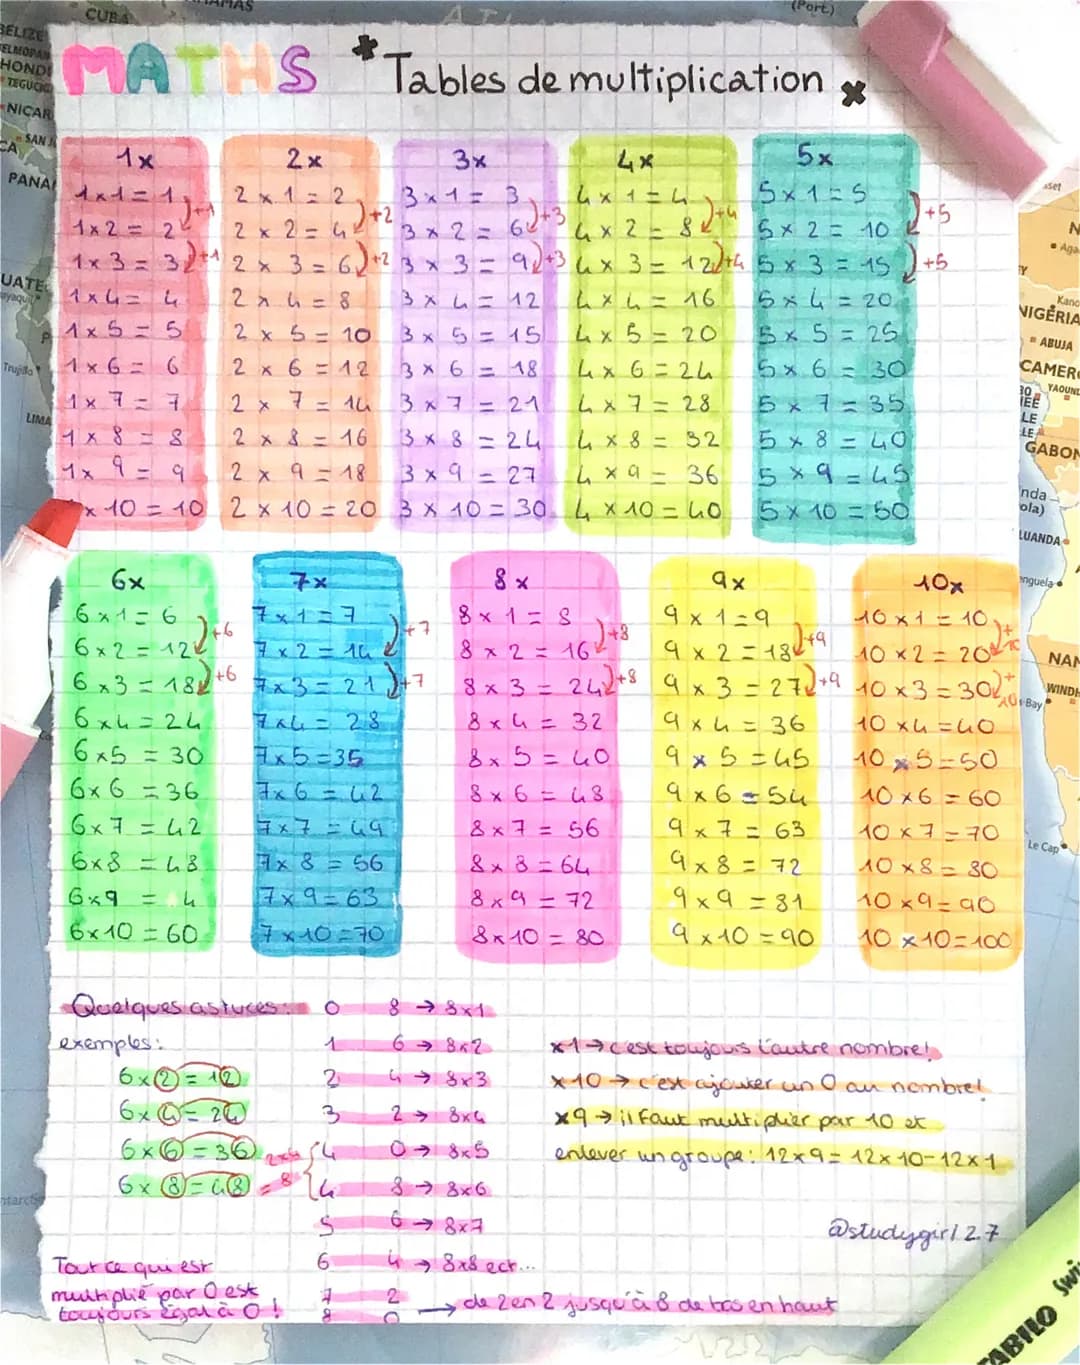 MATHS * Tables de multiplication *
1x
1x1 = 1
1x2 = 2
1x 3 = 3
1x4 = 4
1x5 = 5
1x6 = 6
1x 7 = 7
1x 8 = 8
1x 9 = 9
x 10 = 10
+1
+1
2x
2 x 1 = 2
2 x 2 = 4
2 x 3 = 6
2 x 4 = 8
2 x 5 = 10
2 x 6 = 12
2 x 7 = 14
2 x 8 = 16
2 x 9 = 18
2 x 10 = 20
+2
+2
3x
3 x 1 = 3
3 x 2 = 6
3 x 3 = 9
3 x 4 = 12
3 x 5 = 15
3 x 6 = 18
3 x 7 = 21
3 x 8 = 24
3 x 9 = 27
3 x 10 = 30
+3
+3
4x
4 x 1 = 4
4 x 2 = 8
4 x 3 = 12
4 x 4 = 16
4 x 5 = 20
4 x 6 = 24
4 x 7 = 28
4 x 8 = 32
4 x 9 = 36
4 x 10 = 40
+4
+4
5x
5 x 1 = 5
5 x 2 = 10
5 x 3 = 15
5 x 4 = 20
5 x 5 = 25
5 x 6 = 30
5 x 7 = 35
5 x 8 = 40
5 x 9 = 45
5 x 10 = 50
+5
+5
6x
6 x 1 = 6
6 x 2 = 12
6 x 3 = 18
6 x 4 = 24
6 x 5 = 30
6 x 6 = 36
6 x 7 = 42
6 x 8 = 48
6 x 9 = 4
6 x 10 = 60
+6
+6
7x
7 x 1 = 7
7 x 2 = 14
7 x 3 = 21
7 x 4 = 28
7 x 5 = 35
7 x 6 = 42
7 x 7 = 49
7 x 8 = 56
7 x 9 = 63
7 x 10 = 70
+7
+7
8x
8 x 1 = 8
8 x 2 = 16
8 x 3 = 24
8 x 4 = 32
8 x 5 = 40
8 x 6 = 48
8 x 7 = 56
8 x 8 = 64
8 x 9 = 72
8 x 10 = 80
+8
+8
9x
9 x 1 = 9
9 x 2 = 18
9 x 3 = 27
9 x 4 = 36
9 x 5 = 45
9 x 6 = 54
9 x 7 = 63
9 x 8 = 72
9 x 9 = 81
9 x 10 = 90
+9
+9
10x
10 x 1 = 10
10 x 2 = 20
10 x 3 = 30
10 x 4 = 40
10 x 5 = 50
10 x 6 = 60
10 x 7 = 70
10 x 8 = 80
10 x 9 = 90
10 x 10 = 100
+10
+10
Quelques astuces:
exemples:
6x2 = 12
6x4 = 24
6x6 = 36
6x8 = 48
2x4 = 8
Tout ce qui est
multiplié par 0 est
toujours égal à 0 !
0 8 → 8x1
1 6 → 8x2
2 4 → 8x3
3 2 → 8x4
4 0 → 8x5
4 8 → 8x6
5 6 → 8x7
6 4 → 8x8 ect...
7 2
8 0 → de 2 en 2 jusqu'à 8 de bas en haut
x1 → c'est toujours l'autre nombre!
x10 → c'est ajouter un 0 au nombre!
x9 → il faut multiplier par 10 et
enlever un groupe: 12x9 = 12x10-12x1
@studygirl2.7
CUBA
BELIZE
HOND
NICAR
SAN J
CA
PANA
Trujillo
LIMA
(Port.)
NIGERIA
ABUJA
CAMER
YAOUN
GABON
LUANDA
NAM
WINDH
Le Cap
STABILO Swi